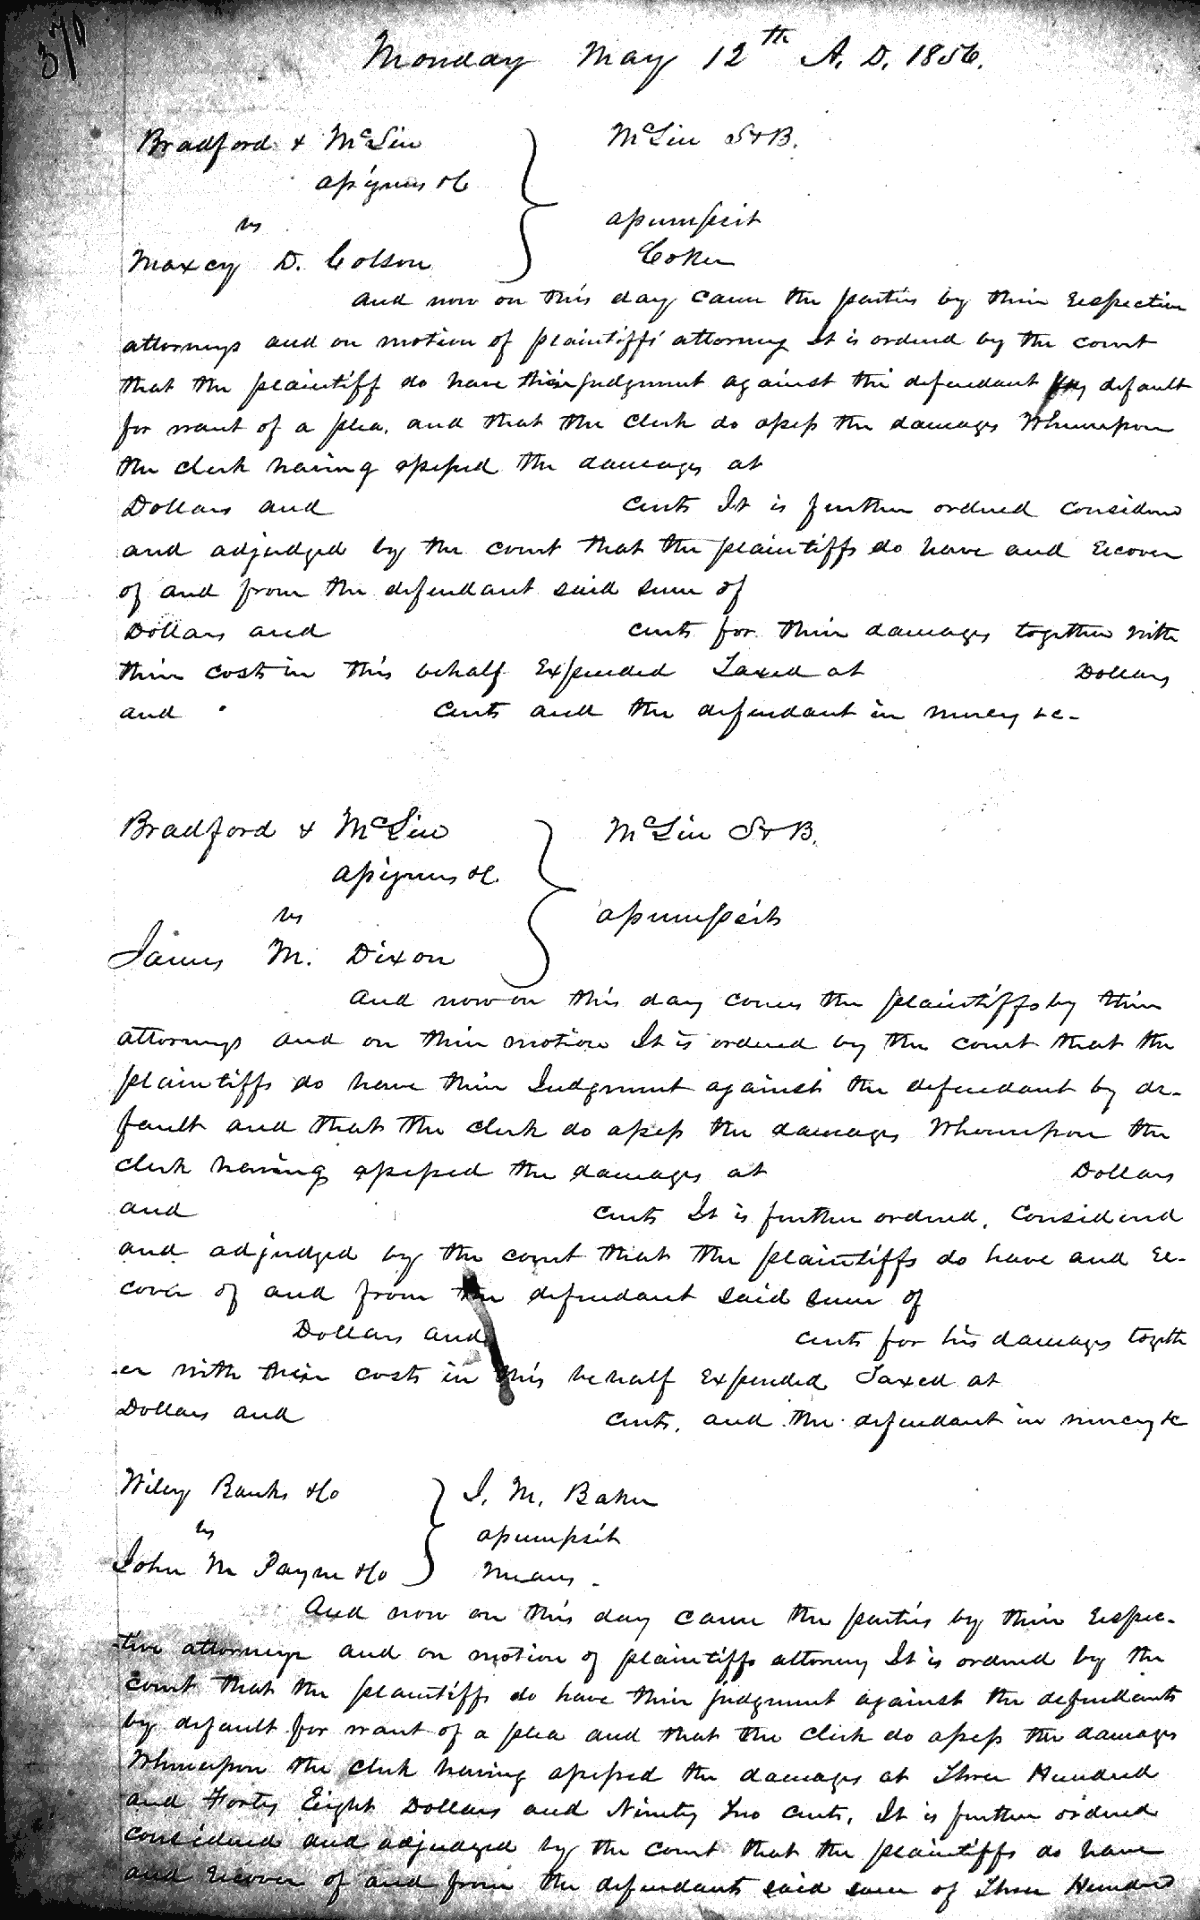 370
Monday May 12th A. D. 1856.
Bradford & McLin } McLin S&B.
assignees &c
vs assumpsit
Maxcy D. Colson Coker
and now on this day came the parties by their respective
attorneys and on motion of plaintiffs attorney It is ordered by the court
that the plaintiff do have their judgment against the defendant by default
for want of a plea, and that the clerk do assess the damages Whereupon
the clerk having assessed the damages at
Dollars and cents It is further ordered considered
and adjudged by the court that the plaintiffs do have and recover
of and from the defendant said sum of
Dollars and cents for their damages together with
their costs in this behalf expended Taxed at Dollars
and cents and the defendant in mercy &c-
Bradford & McLin } McLin S&B.
assignees &c.
vs assumpsit
James M. Dixon
and now on this day comes the plaintiffs by their
attorneys and on their motion It is ordered by the court that the
plaintiffs do have their Judgment against the defendant by de-
fault and that the clerk do assess the damages Whereupon the
clerk having assessed the damages at Dollars
and cents It is further ordered, Considered
and adjudged by the court that the plaintiffs do have and re-
cover of and from the defendant said sum of
Dollars and cents for his damages togeth
er with their costs in this behalf expended Taxed at
Dollars and cents, and the defendant in mercy &c
Wiley Banks &Co } J. M. Baker
vs assumpsit
John M Payne &Co Means.
And now on this day came the parties by their respec-
tive attorneys and on motion of plaintiffs attorney It is ordered by the
court that the plaintiffs do have their judgment against the defendants
by default for want of a plea and that the clerk do assess the damages
Whereupon the clerk having assessed the damages at Three Hundred
and Forty Eight Dollars and Ninety Two cents, It is further ordered
considered and adjudged by the court that the plaintiffs do have
and recover of and from the defendants said sum of Three Hundred